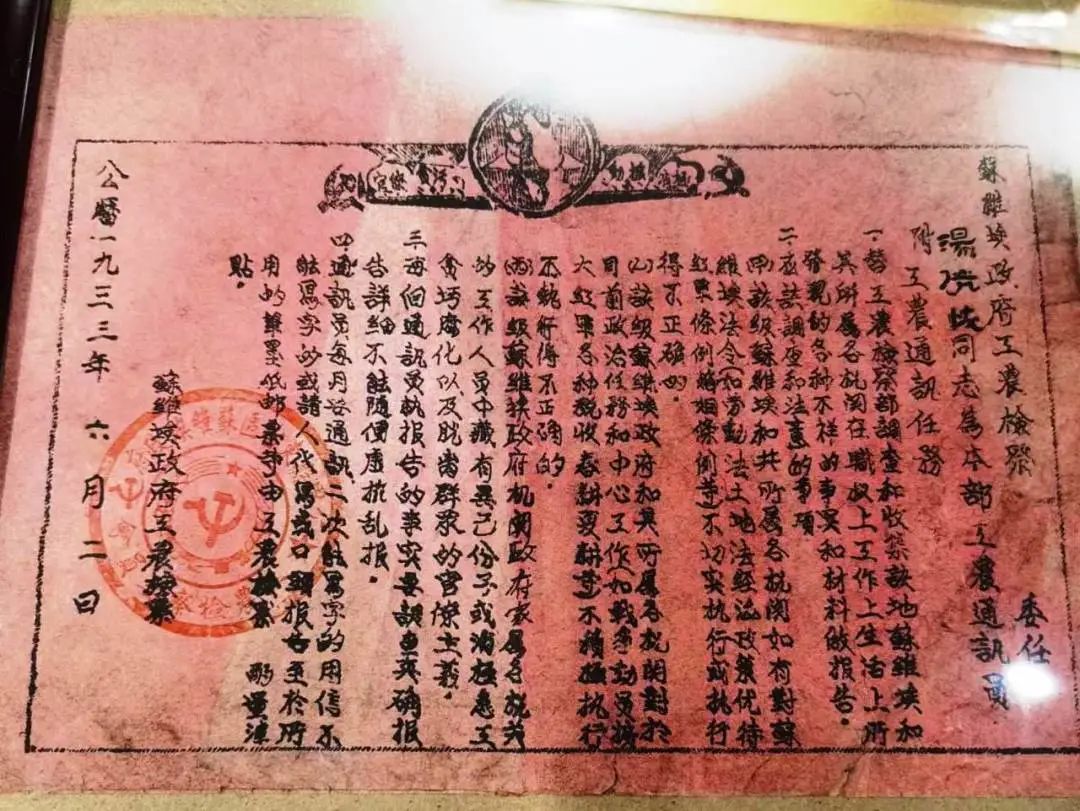 蘇維埃政府工農檢察 委任
同志為本部工農通訊員
附工農通訊任務
一.替工農檢察部調查和收集該地蘇維埃和
其所屬各机関在職权上工作上生活上所
發現的各种不祥的事实和材料做报告。
二.应該調查和注意的事項
(甲)該級蘇維埃和共所屬各机関如有對蘇
維埃法令(如劳動法土地法经济政策优待
红军條例婚姻條例等)不切实执行或执行
得不正确的。
(乙)該級蘇維埃政府和其所屬各机関對於
目前政治任務和中心工作(如戰争動員擴
大红軍各种税收春耕夏耕等)不積極执行
不执行得不正确的。
(丙)該級蘇維埃政府机関政府家屬各机关
的工作人員中藏有異己份子或消極怠工
貪污腐化以及脱离群眾的官僚主義。
三.每個通訊員执报告的事实要調查真确报
告詳細不能随便虚拟乱报。
四.通訊員每月要通訊二次能寫字的用信不
能寫字的或請人代寫或口頭报告至於所
用的筆墨纸邮票等由工農檢察 酌量津
點。
蘇維埃政府工農檢察
公曆一九三三年六月二日